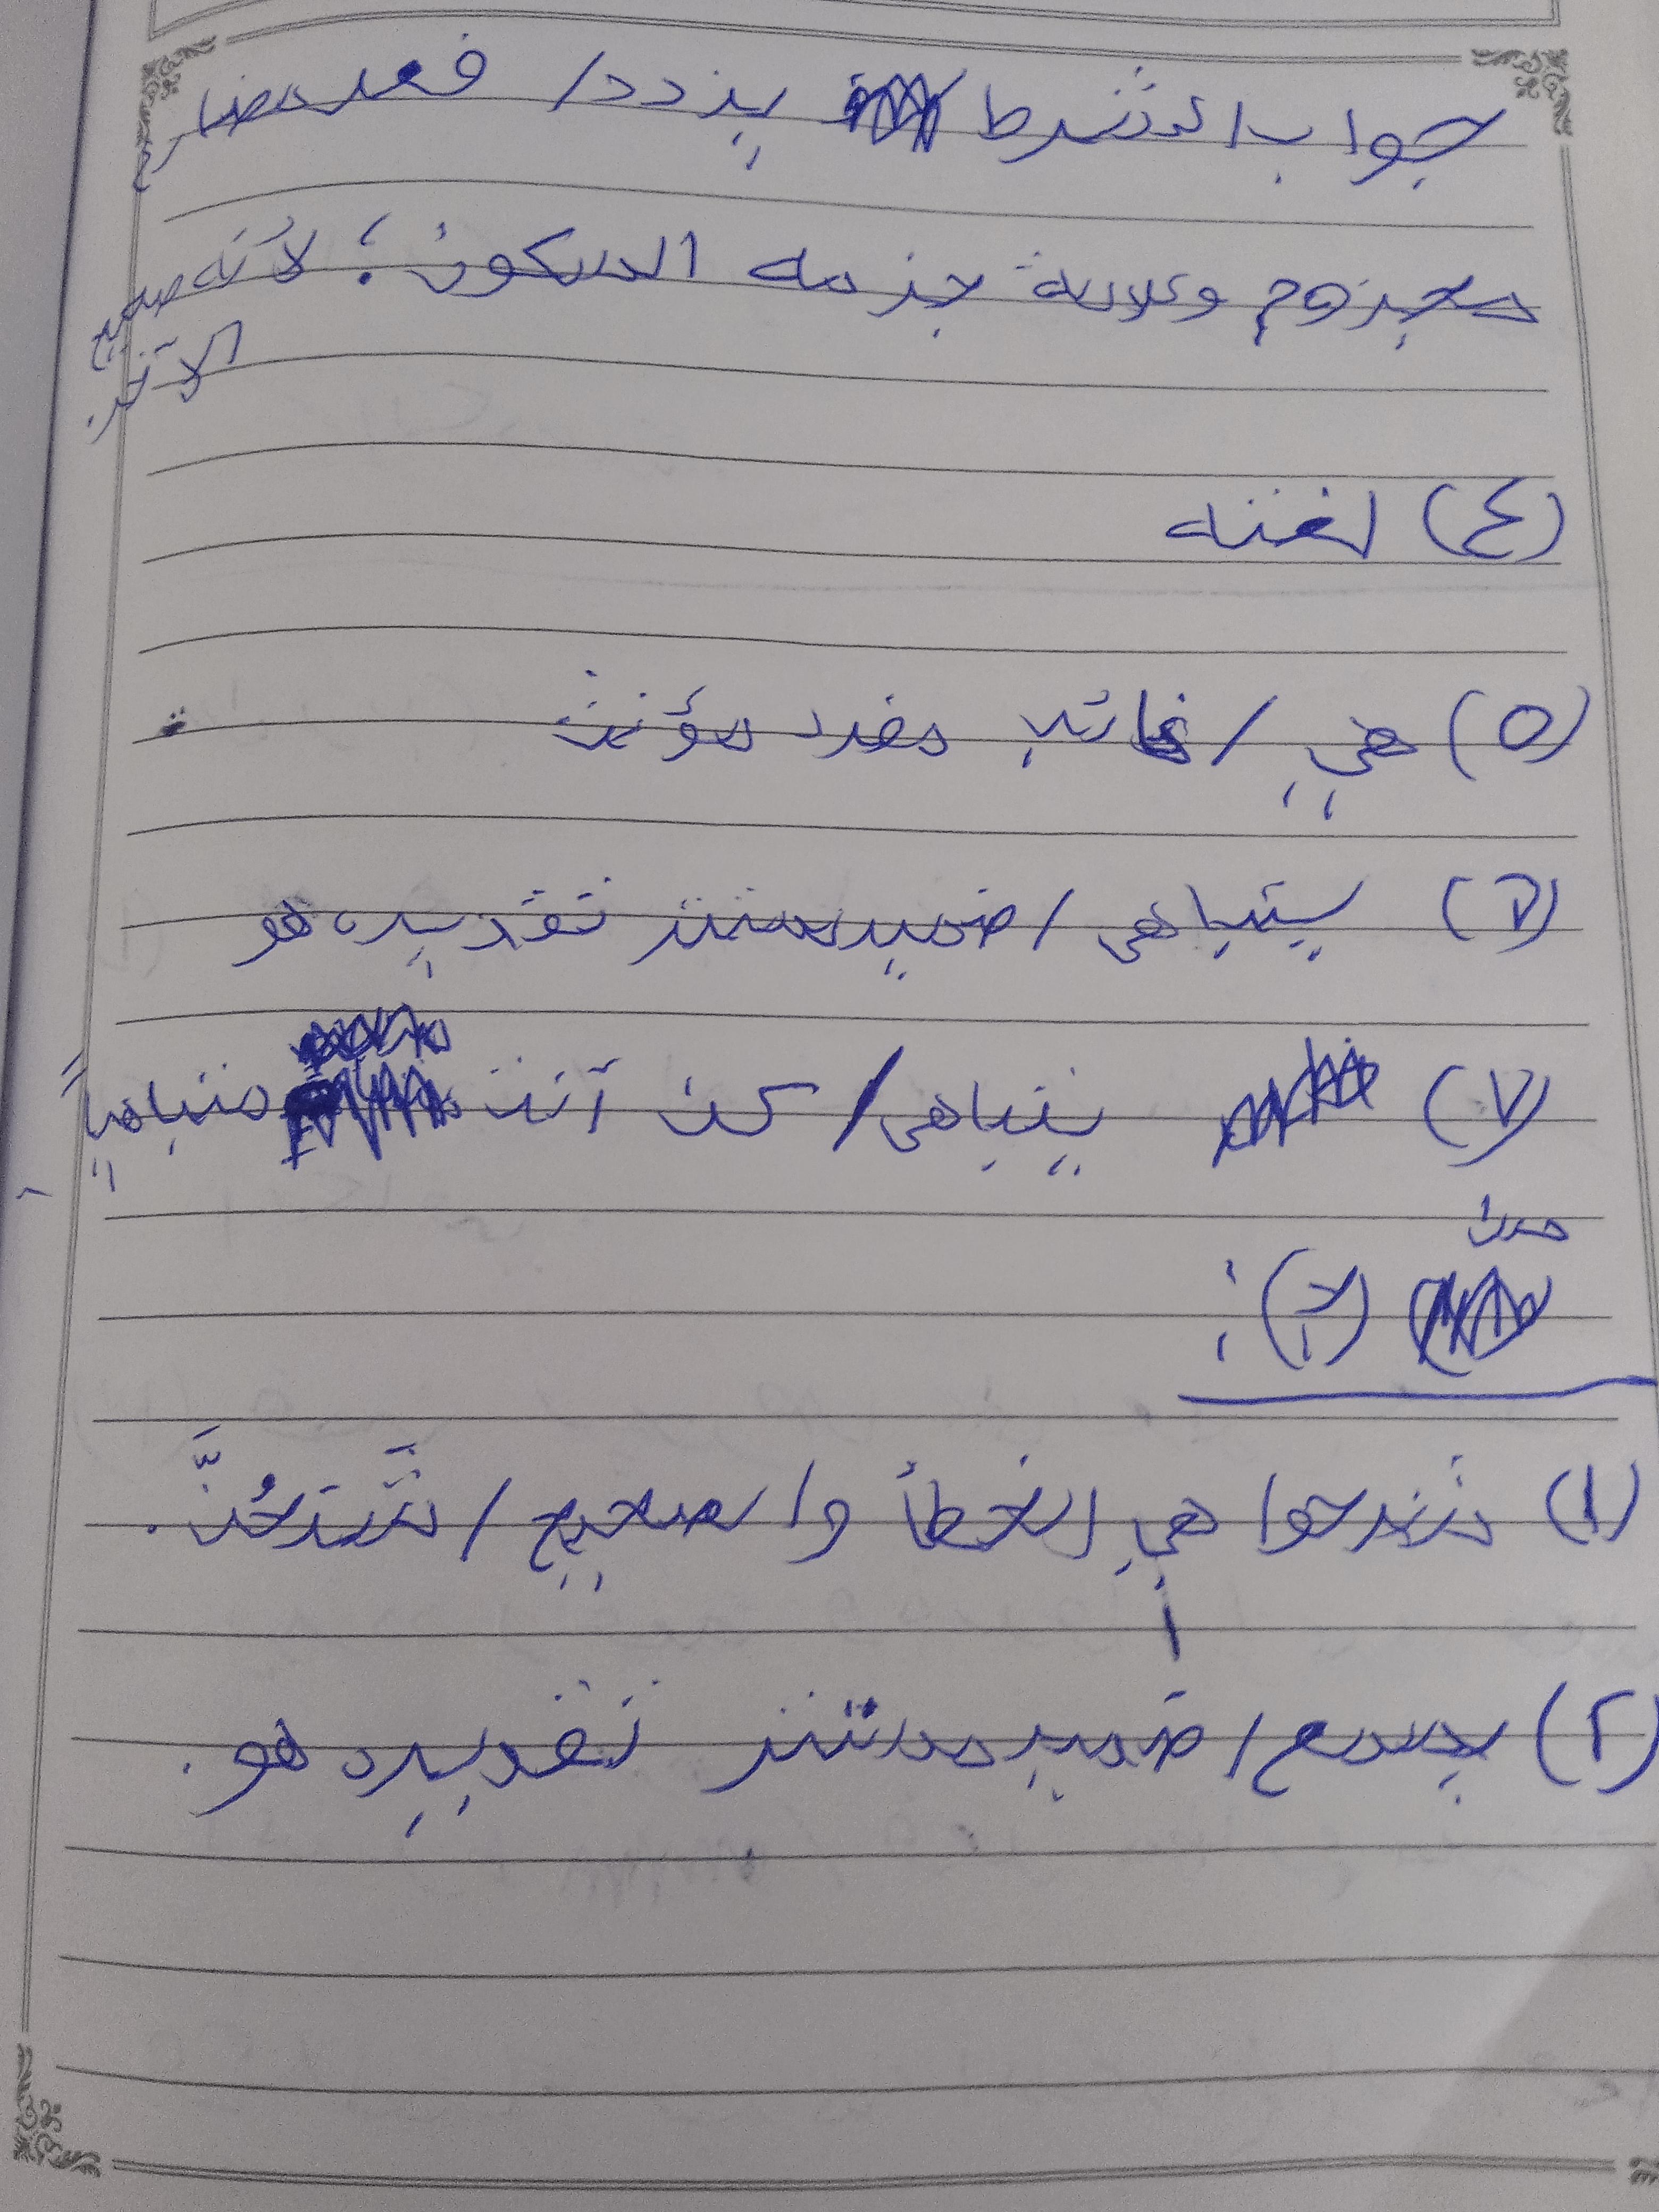 جواب الشرط يزدد/ فعل مضارع
مجزوم وعلامة جزمه السكون؛ لأنه صحيح
الآخر.
(٤) لغته
(٥) هي / غائب مفرد مؤنث
(٦) يتباهى / ضمير مستتر تقديره هو
(٧) يتباهى/ كن أنت متباهياً
(ب):
(١) هي الخطأ والصحيح /
(٢) يسمع/ ضمير مستتر تقديره هو.